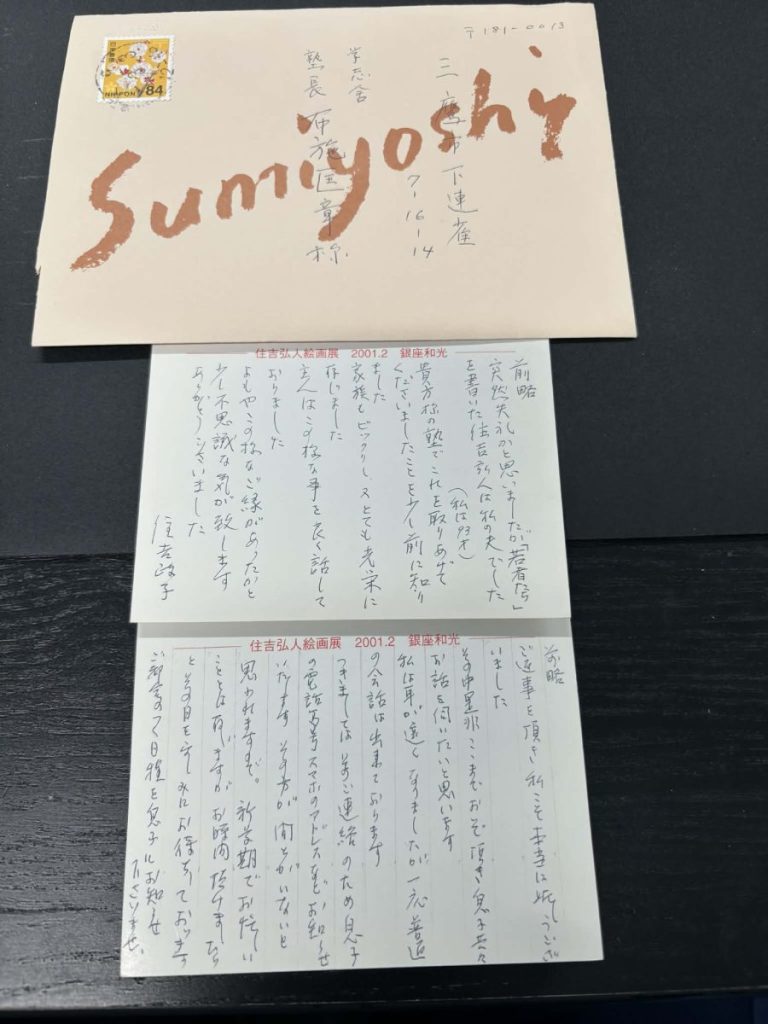 〒181-0013
三鷹市下連雀
7-16-14
学志舎
塾長 布施匡章様
NIPPON 84
Sumiyoshi
住吉弘人絵画展 2001.2 銀座和光
前略
突然失礼かと思いましたが「若者たち」
を書いた住吉弘人は私の夫でした
(私は93才)
貴方様の塾でこれを取りあげて
くださいましたことを少し前に知り
ました
家族もビックリし、又とても光栄に
存じました
主人はこの様な事を良く話して
おりました
よもやこの様なご縁があったかと
少し不思議な気が致します
ありがとうございました
住吉
住吉弘人絵画展 2001.2 銀座和光
前略
ご返事を頂き私こそ本当に嬉しうござ
いました
その中是非ここまでおいで頂き息子共々
お話を伺いたいと思います
私は耳が遠くなりましたが一応普通
の会話は出来ております
つきましては ご連絡のため息子
の電話番号 スマホのアドレスなどお知らせ
いたします その方が間違いがないと
思われますので。新学期でお忙しい
こととは存じますが お時間頂けましたら
とその日を楽しみにお待ちしております
ご都合のつく日程を息子にお知らせ
下さいませ、